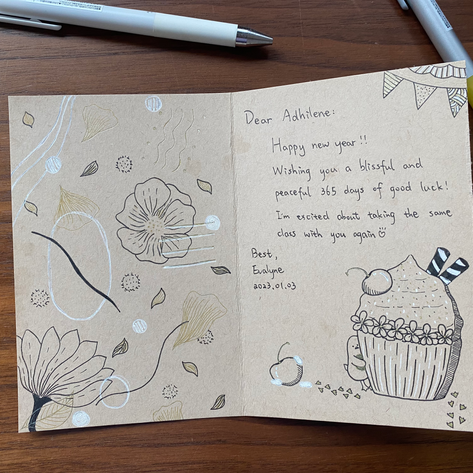 Dear Adhilene:
Happy new year!!
Wishing you a blissful and
peaceful 365 days of good luck!
I'm excited about taking the same
class with you again☺
Best,
Evalyne
2023.01.03